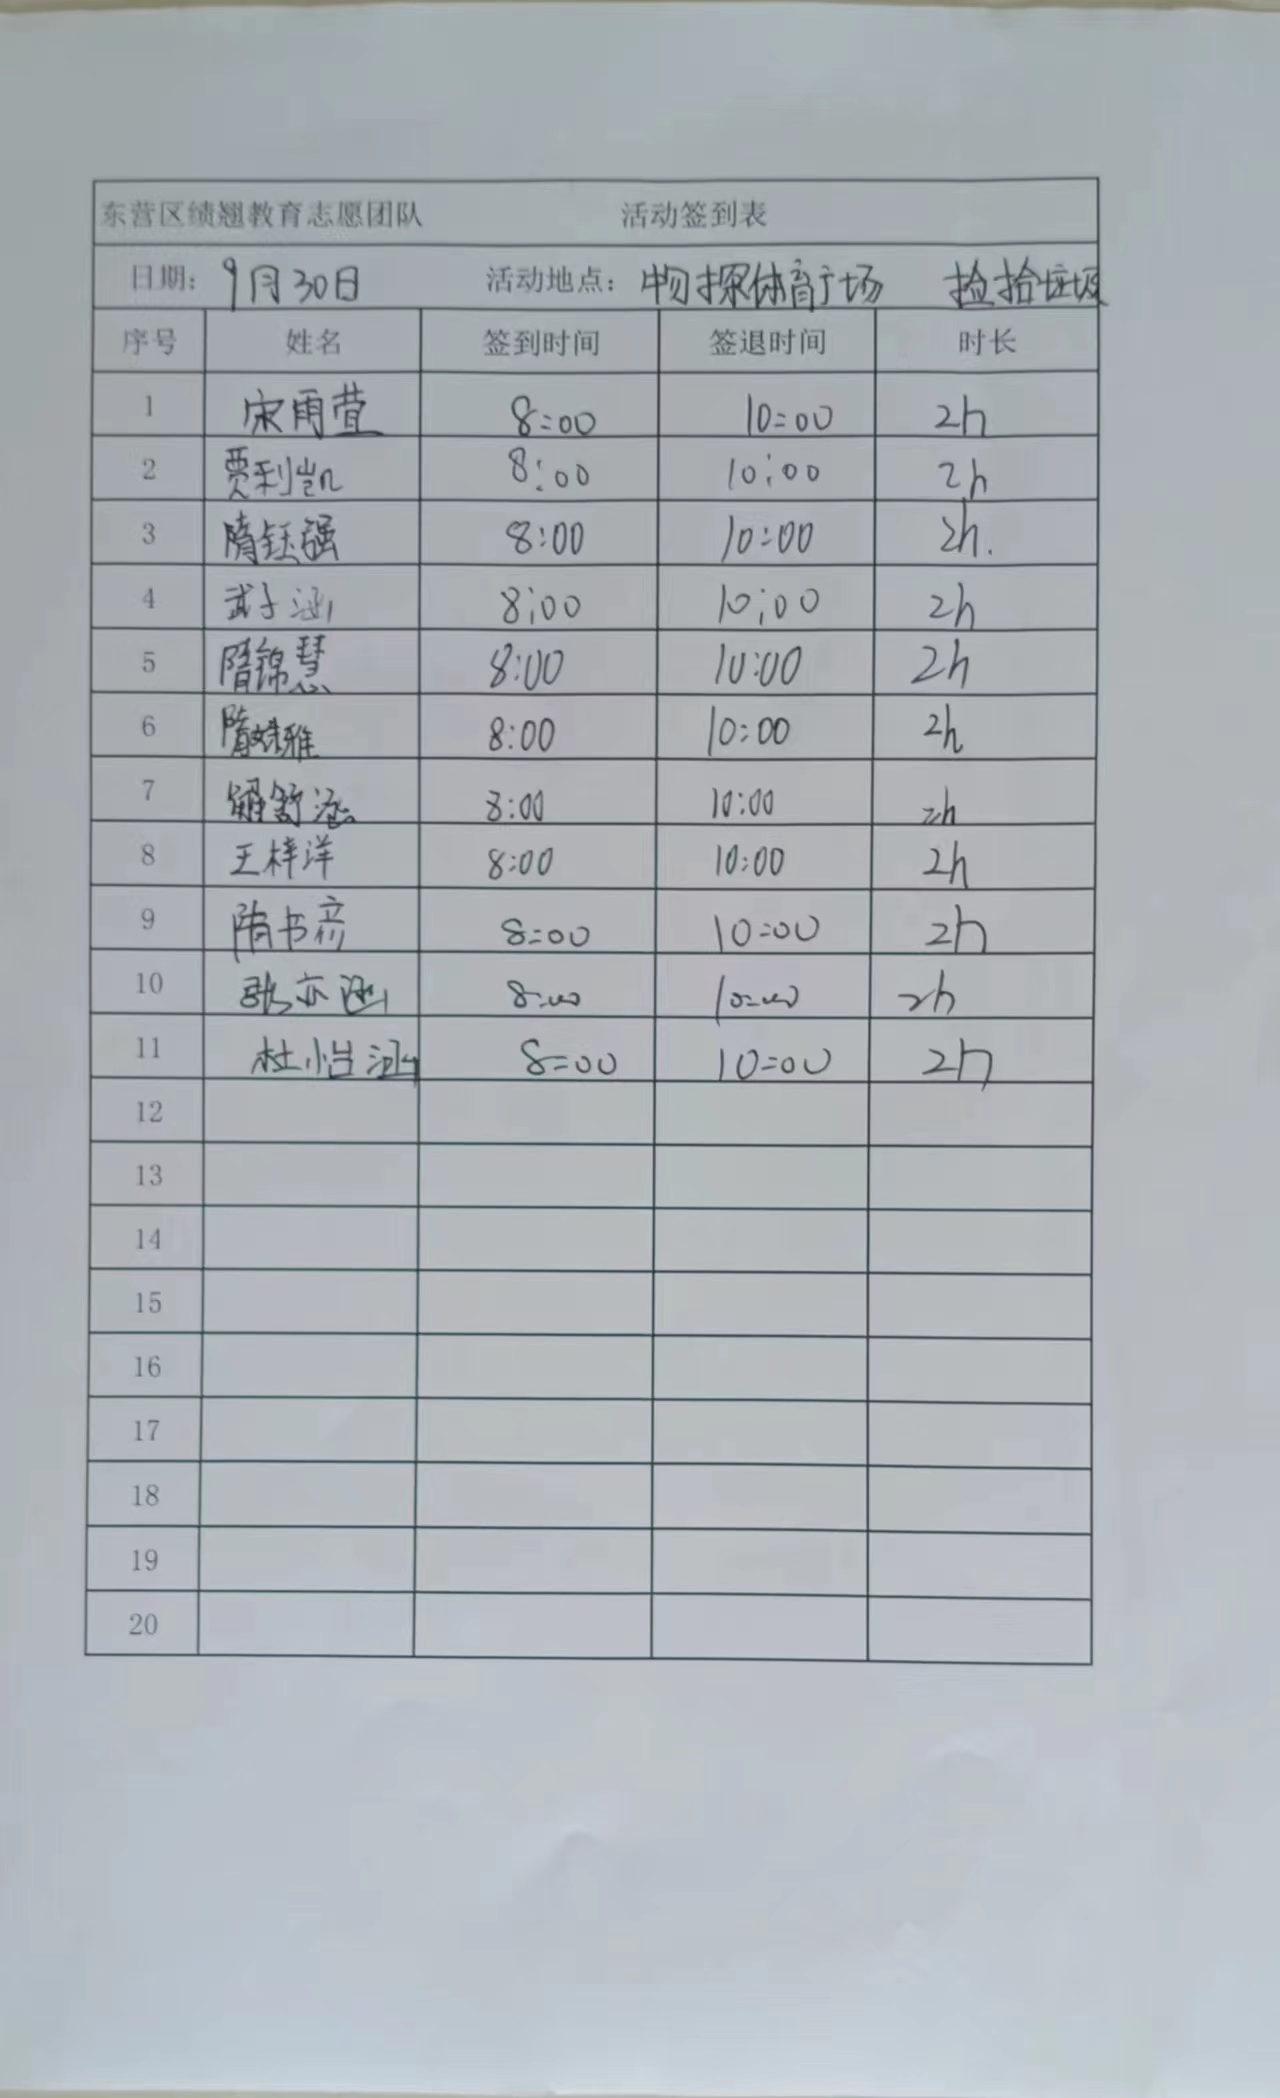 东营区绩翘教育志愿团队 活动签到表
日期：9月30日 活动地点：物探体育广场 捡拾垃圾
序号 姓名 签到时间 签退时间 时长
1 宋雨萱 8:00 10:00 2h
2 贾利凯 8:00 10:00 2h
3 隋钰强 8:00 10:00 2h.
4 武子涵 8:00 10:00 2h
5 隋锦慧 8:00 10:00 2h
6 隋婧雅 8:00 10:00 2h
7 舒涵 8:00 10:00 2h
8 王梓洋 8:00 10:00 2h
9 隋书彦 8:00 10:00 2h
10 张亦涵 8:00 10:00 2h
11 杜怡涵 8:00 10:00 2h
12
13
14
15
16
17
18
19
20